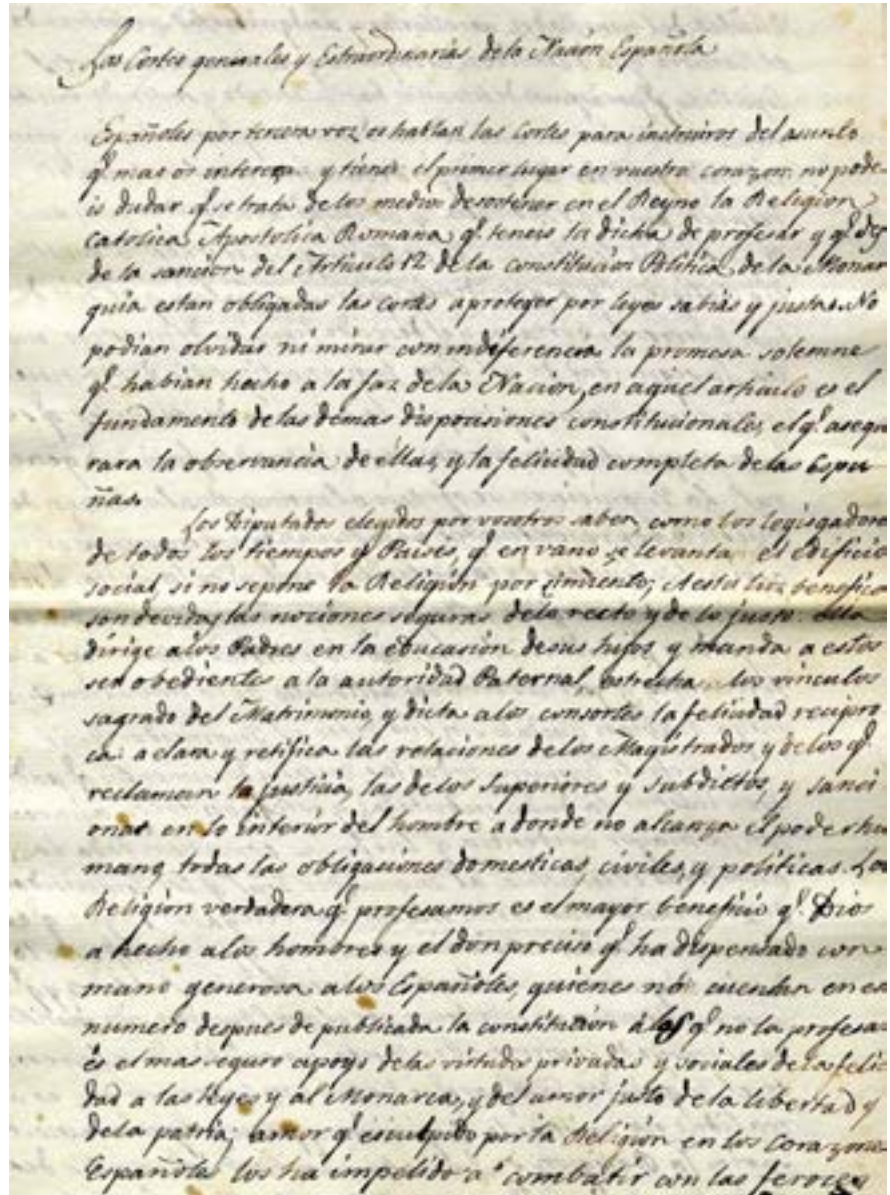 Las Cortes generales y Extraordinarias de la Nacion Española
Españoles por tercera voz os hablan las Cortes para instruiros del asunto
q.e mas os interesa y tiene el primer lugar en vuestro corazon: no pode-
is dudar q.e se trata de los medios de sostener en el Reyno la Religion
Catolica Apostolica Romana q.e teneis la dicha de profesar y q.e des
de la sancion del Articulo 12 de la constitucion Politica de la Monar
quia estan obligadas las cortes a proteger por leyes sabias y justas. No
podian olvidar ni mirar con indiferencia la promesa solemne
q.e habian hecho a la faz de la Nacion, en aquel articulo es el
fundamento de las demas disposiciones constitucionales, el q.e asegu
rara la observancia de éllas, y la felicidad completa de las Espa
ñas.
Los Diputados elegidos por vosotros saben, como los legisladores
de todos los tiempos y Paises, q.e en vano se levanta el edificio
social, si no se pone la Religion por cimiento; A esta luz benefica
son devidas las nociones seguras de lo recto y de lo justo. Ella
dirige a los Padres en la educasión de sus hijos y manda a estos
ser obedientes a la autoridad Paternal, estrecha los vinculos
sagrado del Matrimonio, y dicta a los consortes la felicidad recipro
ca: aclara y retifica las relaciones de los Magistrados y de los q.e
reclaman la justicia, las de los Superiores y subdictos, y sanci
ona en lo interior del hombre a donde no alcanza el poder hu
mano, todas las obligaciones domesticas, civiles, y politicas. La
Religion verdadera q.e profesamos es el mayor beneficio q.e Dios
a hecho a los hombres y el don preciso q.e ha dispensado con
mano generosa a los Españoles, quienes nó cuentan en es
numero despues de publicada la constitucion á los q.e no la profesa
és el mas seguro apoyo de las virtudes privadas y sociales de la felic
dad a las leyes y al Monarca, y del amor justo de la libertad y
de la patria; amor q.e esculpido por la Religion en los Corazones
Españoles los ha impelido a combatir con las feroces